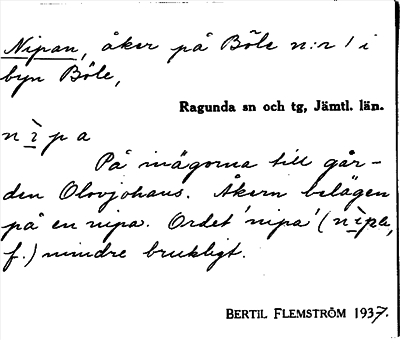 Nipan, åker på Böle n:r 1 i
byn Böle,
Ragunda sn och tg, Jämtl. län.
nìpa
På inägorna till går-
den Olovjohans. Åkern belägen
på en nipa. Ordet 'nipa' (nìpa,
f.) mindre brukligt.
BERTIL FLEMSTRÖM 1937.